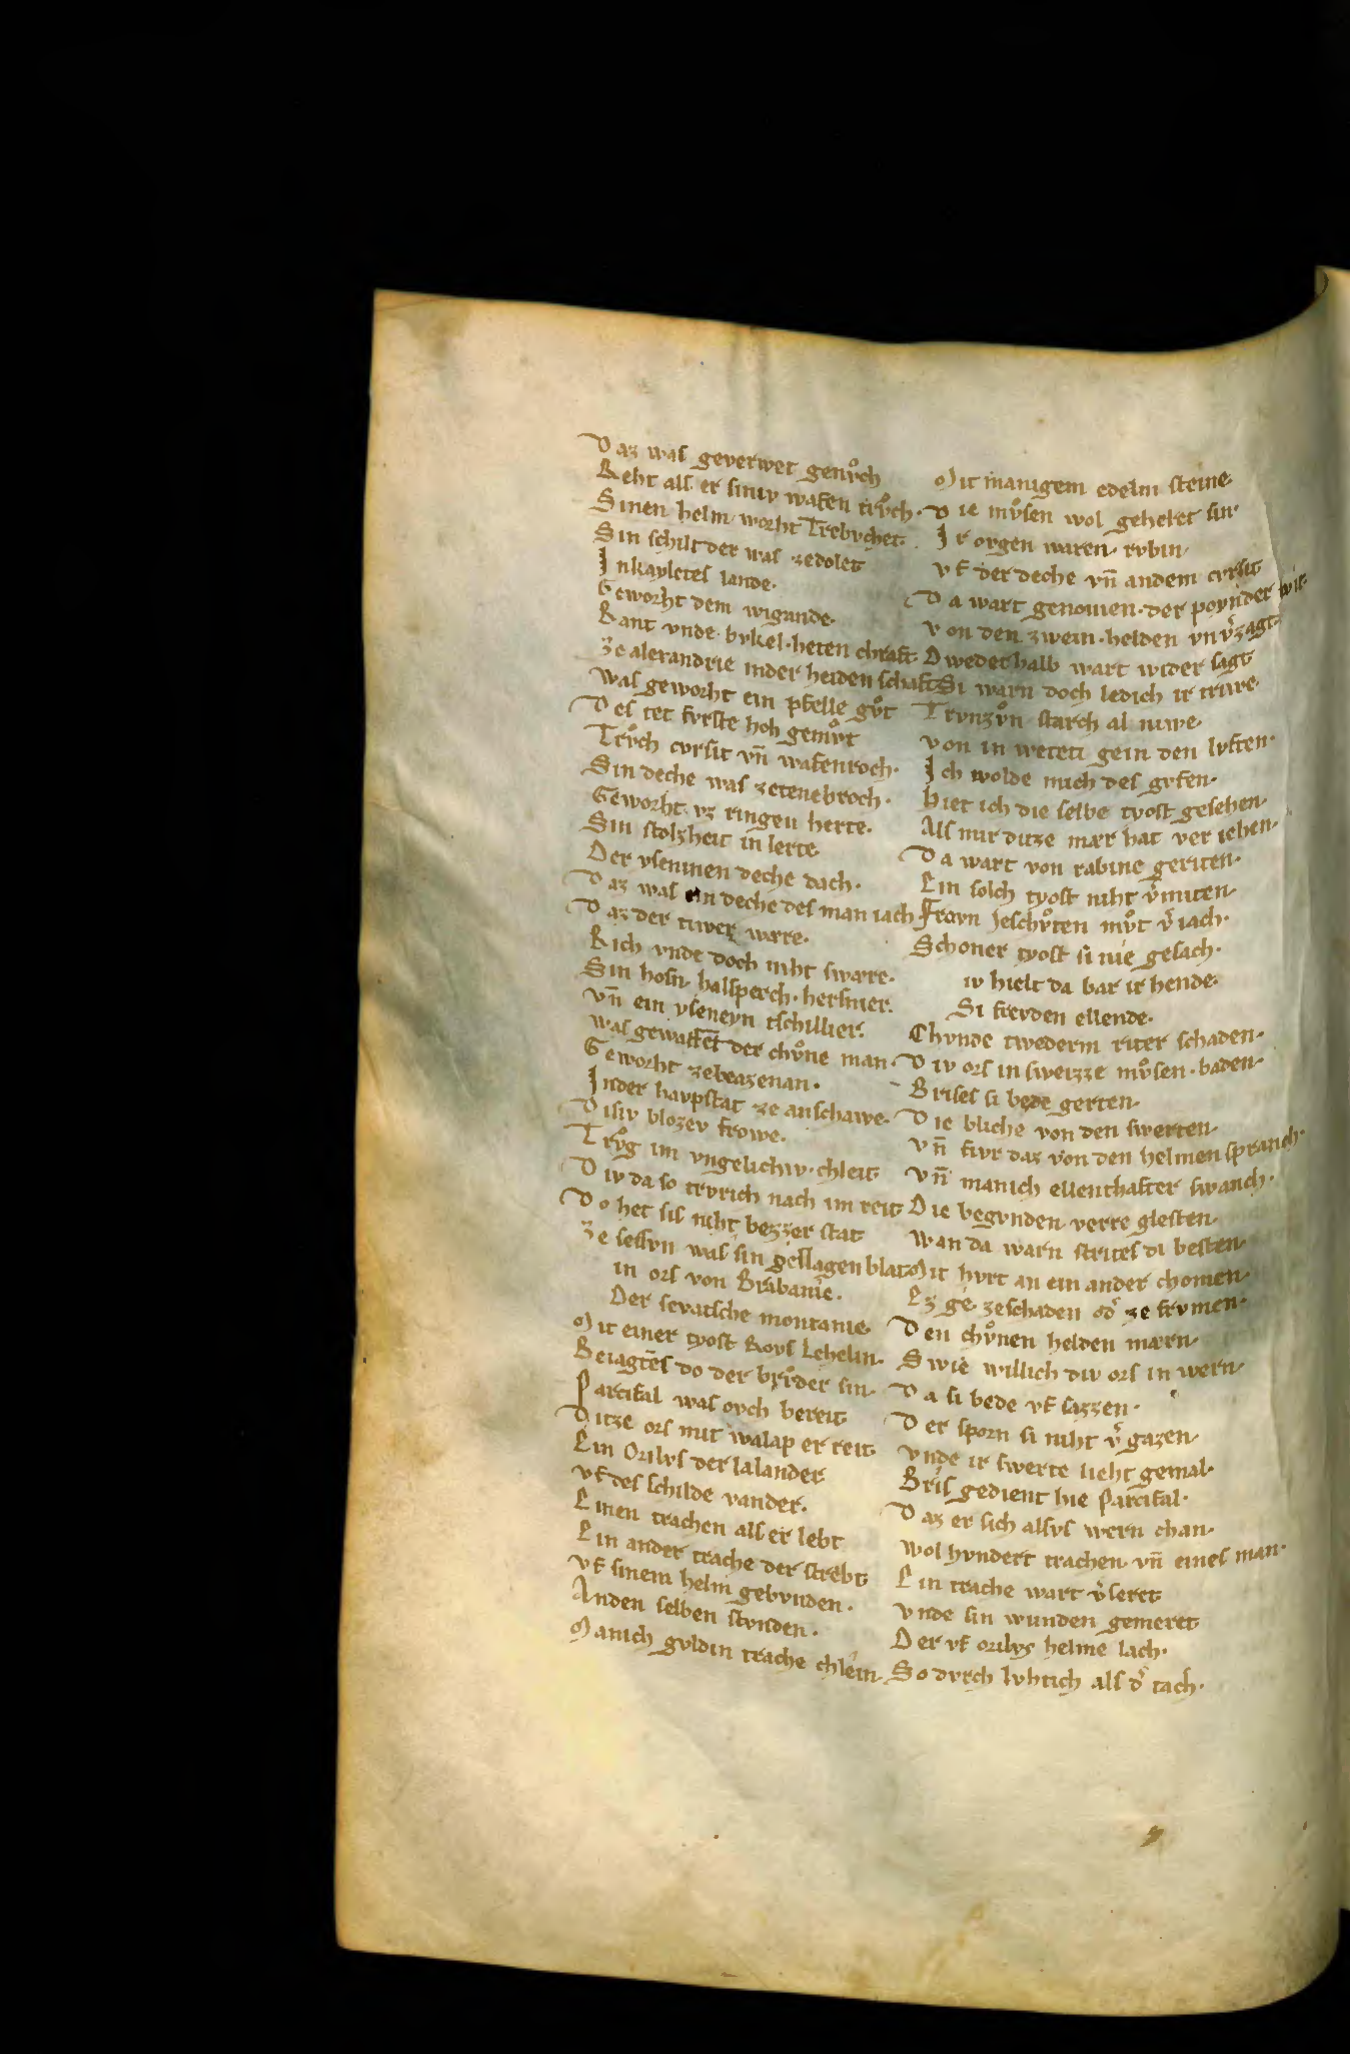 Daz was geverwet genvͦch
Reht alſ er ſiniv wafen trvͦch·
Sinen helm· worht Trebvchet
Sin ſchilt der was zedolet
Inkayletes lande·
Geworht dem wigande·
Rant vnde· bvkel· heten chraft·
Ze alexandrie inder heidenſchaft
was geworht ein pfelle gvͦt
Des tet fvrſte hoh gemvͦt
Trvͦch cvrſit vn̄ wafenroch·
Sin deche was zetenebroch·
Geworht· vz ringen herte·
Sin ſtolzheit in lerte
Der yſeninen deche dach·
Daz was ein deche des man iach
Daz der tiwer wære·
Rich vnde doch niht ſwære·
Sin hoſn· halſperch· herſnier·
vn̄ ein yſeneyn tſchillier·
was gewaffet der chvͦne man·
Geworht zebeazenan·
Inder havpſtat ze anſchawe·
Diſiv blozev frowe·
Trvͦg im vngelichiv· chleit
Div da ſo trvrich nach im reit
Do het ſis niht bezzer ſtat
Ze ſeſſvn was ſin geſlagen blat
in ors von Brabanie·
Der ſevatſche montanie
Mit einer tyoſt Roys Lehelin·
Beiagtes do der brvͦder ſin·
Parcifal was ovch bereit
Ditze ors mit walap er reit
Ein Orilvs der lalander
vf des ſchilde vander·
Einen trachen alſ er lebt
Ein ander trache der ſtrebt
vf ſinem helm gebvnden·
Anden ſelben ſtvnden·
Manich gvldin trache chlein·
Mit manigem edelm ſteine
Die mvͦſen wol geheret ſin·
Ir ovgen waren· rvbin·
vf der deche vn̄ andem cvrſit
Da wart genomen· der poynder wit·
von den zwein· helden vnv̾zagt·
Dwederhalb wart wider ſagt
Si warn doch ledich ir triwe·
Trvnzvͦn ſtarch al niwe·
von in weten gein den lvften·
Ich wolde mich des gvfen·
Hiet ich die ſelbe tyoſt geſehen·
Alſ mir ditze mær hat ver iehen·
Da wart von rabine geriten·
Ein ſolch tyoſt niht v̾miten·
Frovn Jeſchvͦten mvͦt v̾iach·
Schoner tyoſt ſi nie geſach·
iv hielt da bar ir hende·
Si frevden ellende·
Chvnde twederm riter ſchaden·
Div ors in ſweizze mvͦſen· baden·
Briſes ſi bede gerten·
Die bliche von den ſwerten·
vn̄ fivr daz von den helmen ſpranch·
vn̄ manich ellenthafter ſwanch·
Die begvnden verre gleſten·
wan da warn ſtrites di beſten·
Mit hvrt an ein ander chomen·
Ez ge zeſchaden od̾ ze frvmen·
Den chvͦnen helden mærn·
Swie willich div ors in wern·
Da ſi bede vf ſazzen·
Der ſporn ſi niht v̾gazen·
vnde ir ſwerte lieht gemal·
Bris gedient hie Parcifal·
Daz er ſich alſvs wern chan·
wol hvndert trachen· vn̄ eines man·
Ein trache wart v̾ſeret
vnde ſin wunden gemeret
Der vf orilvs helme lach·
So dvrch lvhtich alſ d̾ tach·